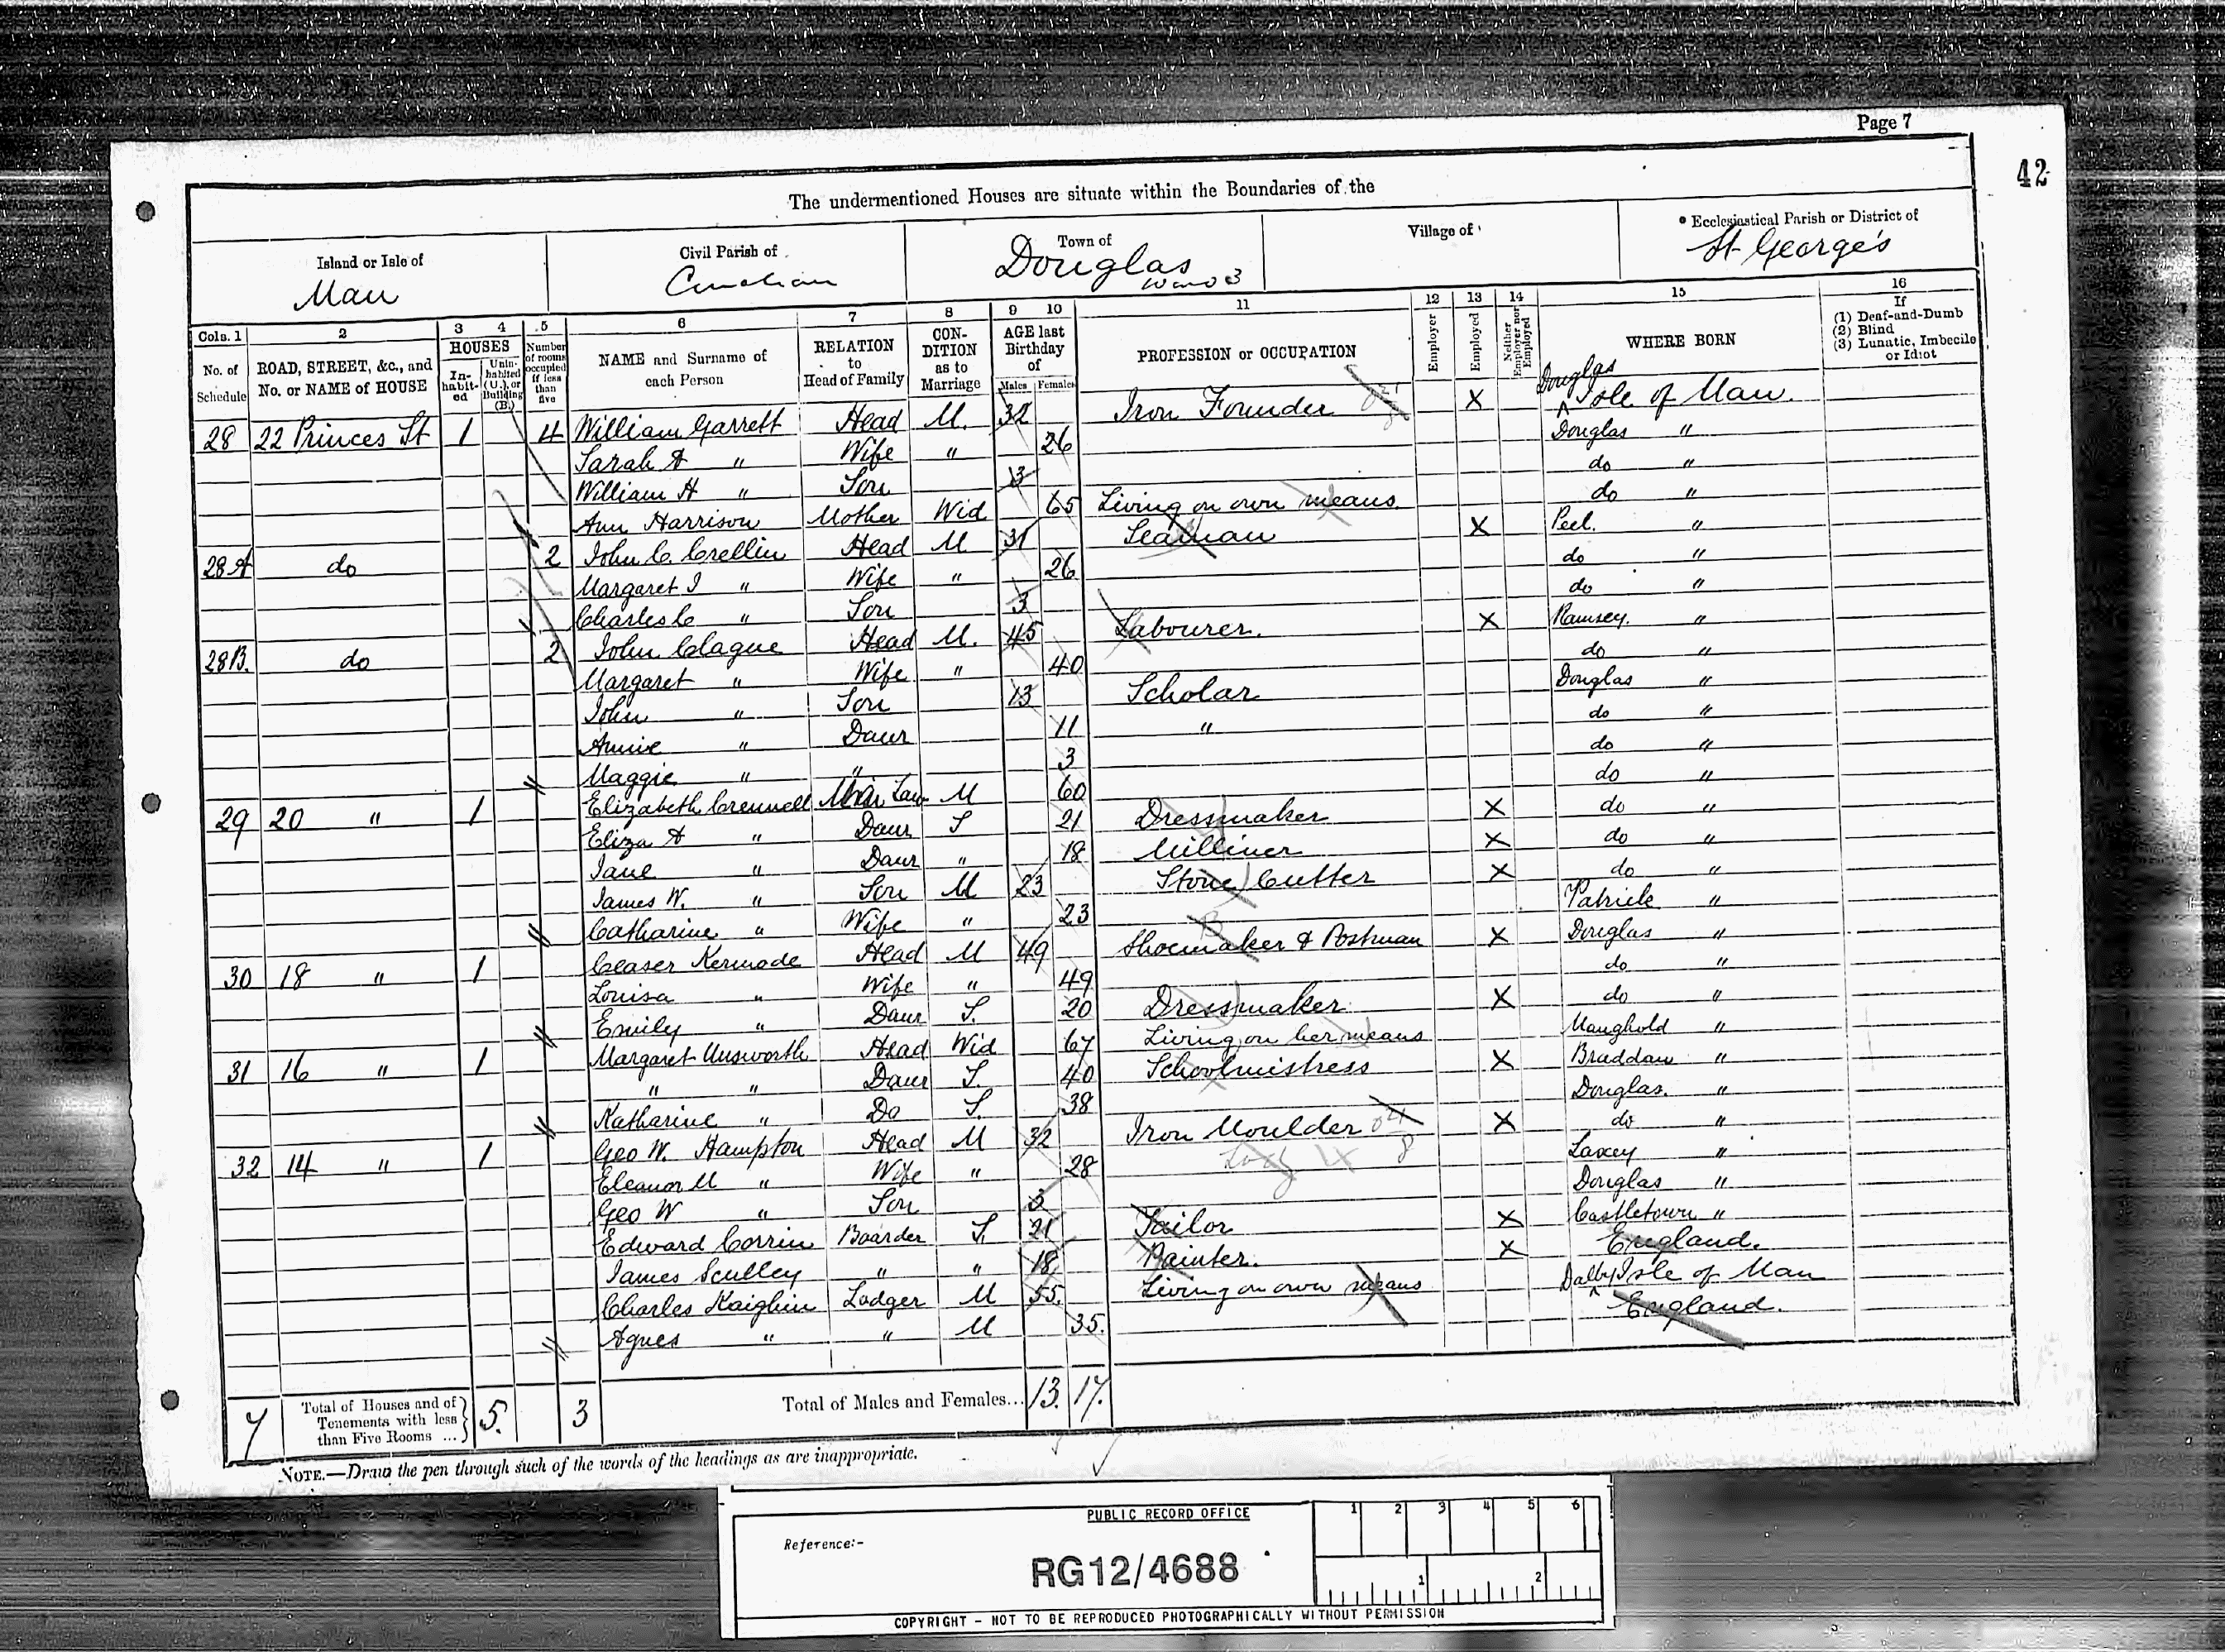 Page 7
42
The undermentioned Houses are situate within the Boundaries of the
Island or Isle of Man
Civil Parish of
Town of Douglas Ward 3
Village of
Ecclesiastical Parish or District of St George's
Cols. 1 2 3 4 5 6 7 8 9 10 11 12 13 14 15 16
No. of Schedule
ROAD, STREET, &c., and No. or NAME of HOUSE
HOUSES
In-habit-ed
Unin-habited (U.), or Building (B.)
Number of rooms occupied if less than five
NAME and Surname of each Person
RELATION to Head of Family
CON-DITION as to Marriage
AGE last Birthday of
Males Females
PROFESSION or OCCUPATION
Employer
Employed
Neither Employer nor Employed
WHERE BORN
If
(1) Deaf-and-Dumb
(2) Blind
(3) Lunatic, Imbecile or Idiot
28 22 Princes St 1 4 William Garrett Head M. 32 Iron Founder X Douglas Isle of Man.
Sarah A " Wife " 26 Douglas "
William H " Son 3 do "
Ann Harrison Mother Wid 65 Living on own means. do "
28A do 2 John C. Crellin Head M 31 Seaman X Peel. "
Margaret I " Wife " 26 do "
Charles C " Son 3 do "
28B. do 2 John Clague Head M. 45 Labourer. X Ramsey. "
Margaret " Wife " 40 do "
John " Son 13 Scholar Douglas "
Annie " Daur 11 " do "
Maggie " " 3 do "
29 20 " 1 Elizabeth Crennell M 60 do "
Eliza A " Daur S 21 Dressmaker X do "
Jane " Daur " 18 Milliner X do "
James W. " Son M 23 Stone Cutter X do "
Catharine " Wife " 23 Patrick "
30 18 " 1 Ceaser Kermode Head M 49 Shoemaker & Postman X Douglas "
Louisa " Wife " 49 do "
Emily " Daur S. 20 Dressmaker X do "
31 16 " 1 Margaret Unsworth Head Wid 67 Living on her means Maughold "
" " Daur S. 40 Schoolmistress X Braddan "
Katharine " Do S. 38 Douglas. "
32 14 " 1 Geo W. Hampton Head M 32 Iron Moulder X do "
Eleanor M " Wife " 28 Laxey "
Geo W " Son 3 Douglas "
Edward Corrin Boarder S. 21 Tailor X Castletown "
James Sculley " " 18 Painter. X England.
Charles Kaighin Lodger M 55. Living on own means Dalby Isle of Man
Agnes " " M 35. England.
7 Total of Houses and of Tenements with less than Five Rooms ... 5. 3 Total of Males and Females... 13. 17.
NOTE.—Draw the pen through such of the words of the headings as are inappropriate.
PUBLIC RECORD OFFICE
1 2 3 4 5 6
Reference:-
RG12/4688
1 2
COPYRIGHT - NOT TO BE REPRODUCED PHOTOGRAPHICALLY WITHOUT PERMISSION